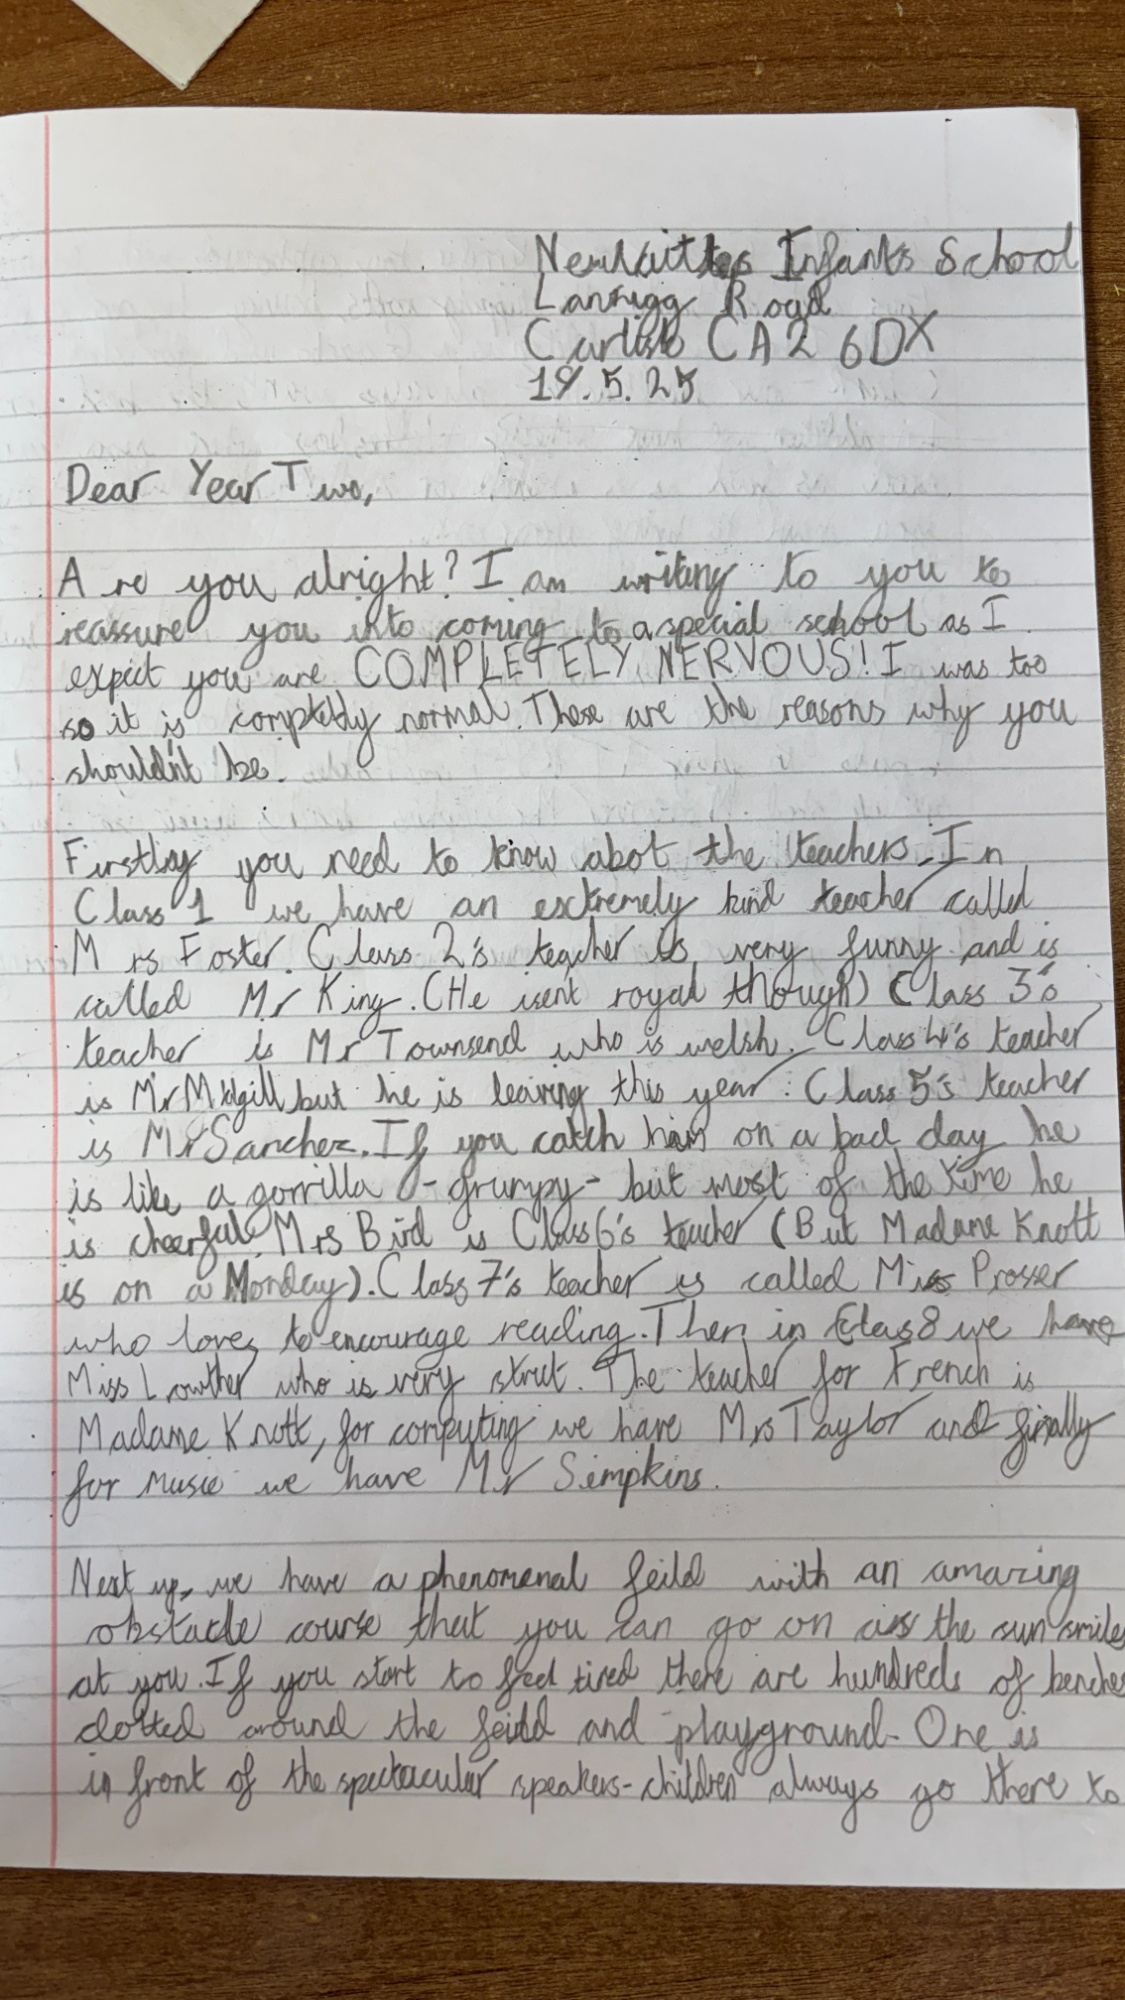 Newlaithes Infants School
Lanrigg Road
Carlisle CA2 6DX
19.5.25
Dear Year Two,
Are you alright? I am writing to you to
reassure you into coming to a special school as I
expect you are COMPLETELY NERVOUS! I was too
so it is completely normal. These are the reasons why you
shouldn't be.
Firstlay you need to know abot the teachers. In
Class 1 we have an extremely kind teacher called
Mrs Foster. Class 2's teacher is very funny and is
called Mr King. (He isent royal though) Class 3's
teacher is Mr Townsend who is welsh. Class 4's teacher
is Mr but he is leaving this year. Class 5's teacher
is Mr Sanchez. If you catch him on a bad day he
is like a gorrilla - grumpy - but most of the time he
is cheerful. Mrs Bird is Class 6's teacher (But Madame Knott
is on a Monday). Class 7's teacher is called Miss Prosser
who loves to encourage reading. Then in Clas 8 we have
Miss Lowther who is very strict. The teacher for French is
Madame Knott, for computing we have Mrs Taylor and finally
for Music we have Mr Simpkins.
Next up, we have a phenomenal feild with an amazing
obstacle course that you can go on as the sun smiles
at you. If you start to feel tired there are hundreds of benches
dotted around the feild and playground. One is
in front of the spectacular speakers - children always go there to